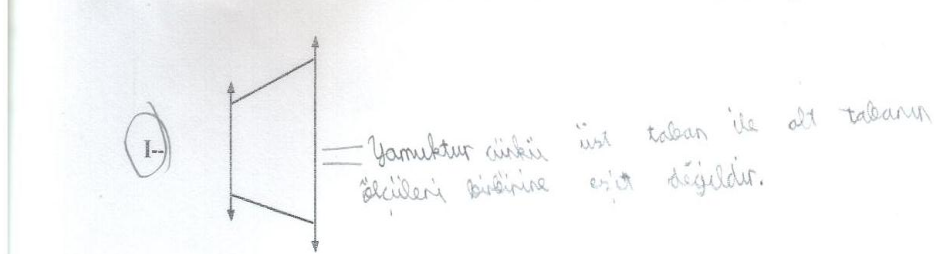 I--
Yamuktur çünkü üst taban ile alt tabanın
ölçüleri birbirine eşit değildir.